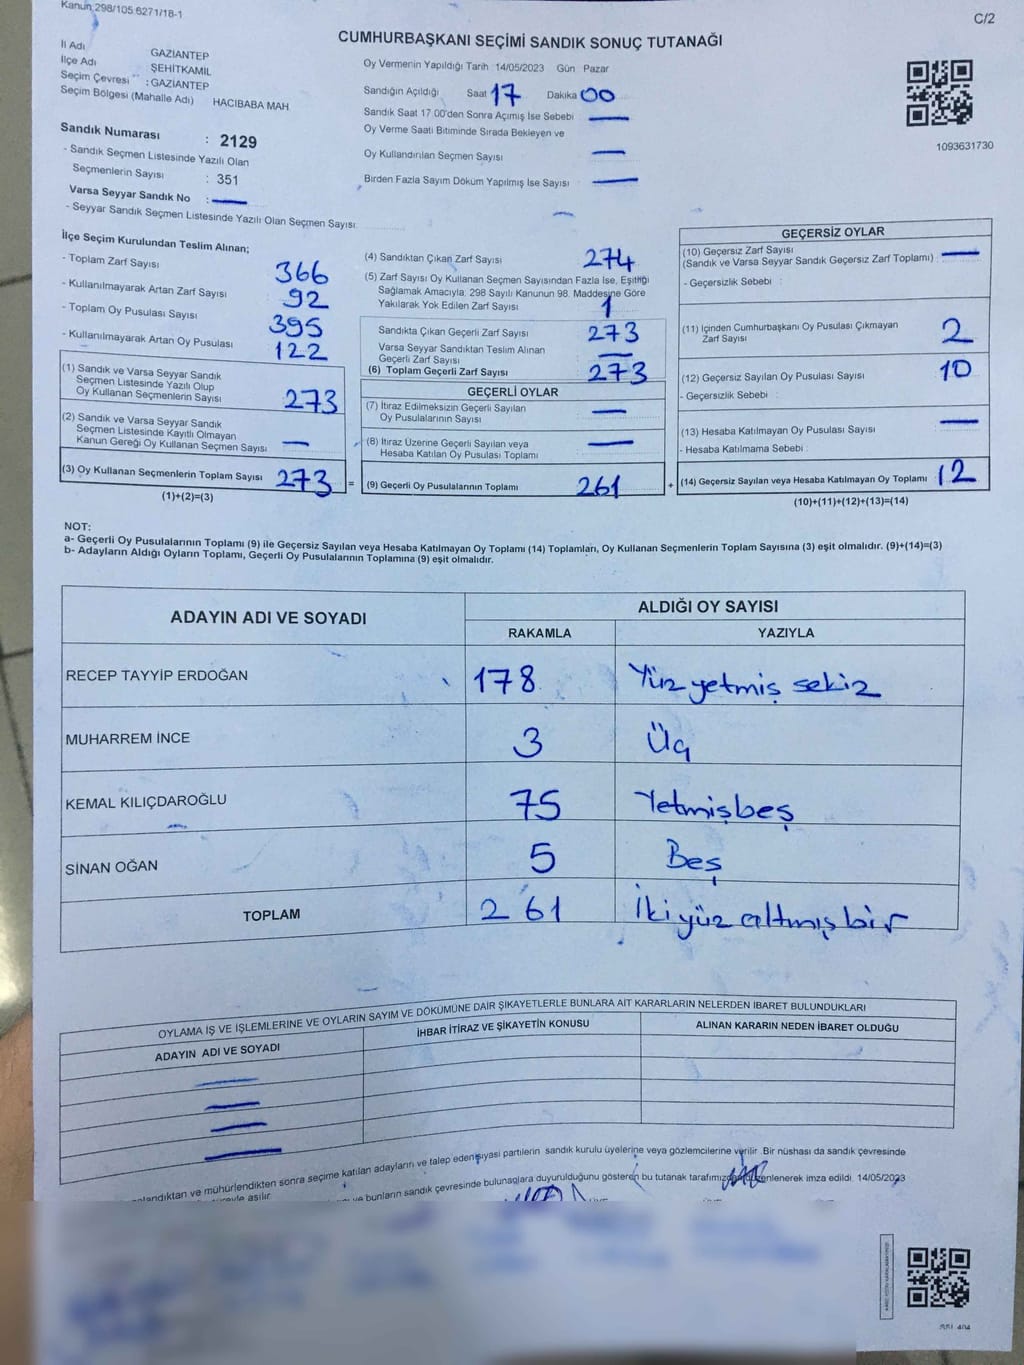 Kanun:298/105.6271/18-1
C/2
CUMHURBAŞKANI SEÇİMİ SANDIK SONUÇ TUTANAĞI
İl Adı GAZİANTEP
İlçe Adı ŞEHİTKAMİL
Seçim Çevresi : GAZİANTEP
Seçim Bölgesi (Mahalle Adı) HACIBABA MAH
Oy Vermenin Yapıldığı Tarih : 14/05/2023 Gün Pazar
Sandığın Açıldığı Saat 17 Dakika 00
Sandık Saat 17 00'den Sonra Açımış İse Sebebi
Oy Verme Saati Bitiminde Sırada Bekleyen ve
Oy Kullandırılan Seçmen Sayısı
Birden Fazla Sayım Döküm Yapılmış İse Sayısı
1093631730
Sandık Numarası : 2129
- Sandık Seçmen Listesinde Yazılı Olan
Seçmenlerin Sayısı : 351
Varsa Seyyar Sandık No :
- Seyyar Sandık Seçmen Listesinde Yazılı Olan Seçmen Sayısı
İlçe Seçim Kurulundan Teslim Alınan;
- Toplam Zarf Sayısı 366
- Kullanılmayarak Artan Zarf Sayısı 92
- Toplam Oy Pusulası Sayısı 395
- Kullanılmayarak Artan Oy Pusulası 122
(1) Sandık ve Varsa Seyyar Sandık
Seçmen Listesinde Yazılı Olup
Oy Kullanan Seçmenlerin Sayısı 273
(2) Sandık ve Varsa Seyyar Sandık
Seçmen Listesinde Kayıtlı Olmayan
Kanun Gereği Oy Kullanan Seçmen Sayısı
(3) Oy Kullanan Seçmenlerin Toplam Sayısı 273
(1)+(2)=(3)
(4) Sandıktan Çıkan Zarf Sayısı 274
(5) Zarf Sayısı Oy Kullanan Seçmen Sayısından Fazla İse, Eşitliği
Sağlamak Amacıyla; 298 Sayılı Kanunun 98. Maddesine Göre
Yakılarak Yok Edilen Zarf Sayısı 1
Sandıkta Çıkan Geçerli Zarf Sayısı 273
Varsa Seyyar Sandıktan Teslim Alınan
Geçerli Zarf Sayısı
(6) Toplam Geçerli Zarf Sayısı 273
GEÇERLİ OYLAR
(7) İtiraz Edilmeksizin Geçerli Sayılan
Oy Pusulalarının Sayısı
(8) İtiraz Üzerine Geçerli Sayılan veya
Hesaba Katılan Oy Pusulası Toplamı
= (9) Geçerli Oy Pusulalarının Toplamı 261
GEÇERSİZ OYLAR
(10) Geçersiz Zarf Sayısı
(Sandık ve Varsa Seyyar Sandık Geçersiz Zarf Toplamı) :
- Geçersizlik Sebebi :
(11) İçinden Cumhurbaşkanı Oy Pusulası Çıkmayan
Zarf Sayısı 2
(12) Geçersiz Sayılan Oy Pusulası Sayısı 10
- Geçersizlik Sebebi :
(13) Hesaba Katılmayan Oy Pusulası Sayısı
- Hesaba Katılmama Sebebi :
+ (14) Geçersiz Sayılan veya Hesaba Katılmayan Oy Toplamı 12
(10)+(11)+(12)+(13)=(14)
NOT:
a- Geçerli Oy Pusulalarının Toplamı (9) ile Geçersiz Sayılan veya Hesaba Katılmayan Oy Toplamı (14) Toplamları, Oy Kullanan Seçmenlerin Toplam Sayısına (3) eşit olmalıdır. (9)+(14)=(3)
b- Adayların Aldığı Oyların Toplamı, Geçerli Oy Pusulalarının Toplamına (9) eşit olmalıdır.
ADAYIN ADI VE SOYADI ALDIĞI OY SAYISI
RAKAMLA YAZIYLA
RECEP TAYYİP ERDOĞAN 178 Yüz yetmiş sekiz
MUHARREM İNCE 3 Üç
KEMAL KILIÇDAROĞLU 75 Yetmişbeş
SİNAN OĞAN 5 Beş
TOPLAM 261 İkiyüz altmışbir
OYLAMA İŞ VE İŞLEMLERİNE VE OYLARIN SAYIM VE DÖKÜMÜNE DAİR ŞİKAYETLERLE BUNLARA AİT KARARLARIN NELERDEN İBARET BULUNDUKLARI
ADAYIN ADI VE SOYADI İHBAR İTİRAZ VE ŞİKAYETİN KONUSU ALINAN KARARIN NEDEN İBARET OLDUĞU
landıktan ve mühürlendikten sonra seçime katılan adayların ve talep eden siyasi partilerin sandık kurulu üyelerine veya gözlemcilerine verilir. Bir nüshası da sandık çevresinde
asılır. ve bunların sandık çevresinde bulunanlara duyurulduğunu gösteren bu tutanak tarafımızdan düzenlenerek imza edildi. 14/05/2023